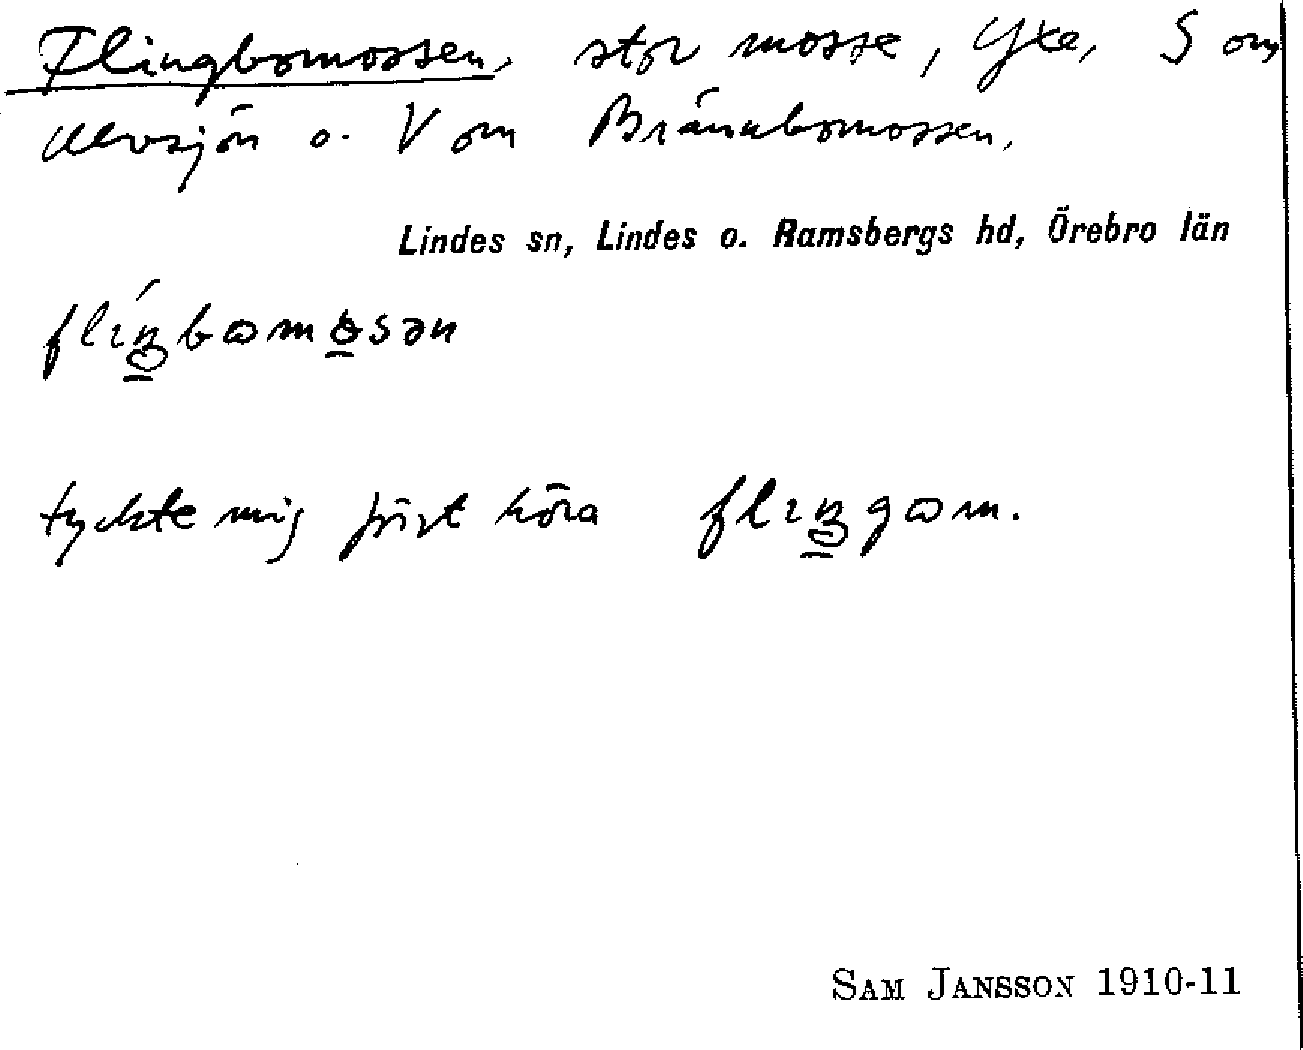 Flingbomossen, stor mosse, Yxe, S om
Ulvsjön o. V om Brännbomossen.
Lindes sn, Lindes o. Ramsbergs hd, Örebro län
flíŋbɷmòsən
tyckte mig först höra flıŋgɷm.
SAM JANSSON 1910-11